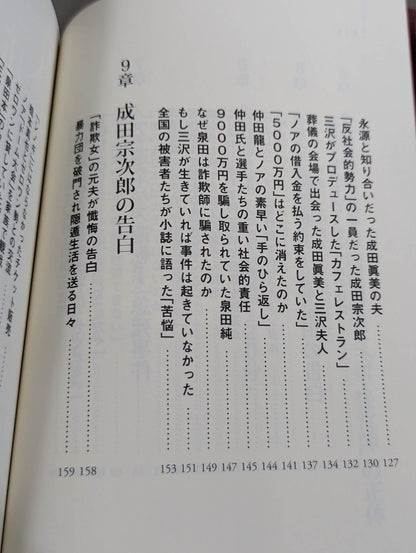 永源と知り合いだった成田眞美の夫……127
「反社会的勢力」の一員だった成田宗次郎……130
三沢がプロデュースした「カフェレストラン」……132
葬儀の会場で出会った成田眞美と三沢夫人……134
「ノアの借入金を払う約束をしていた」……137
「5000万円」はどこに消えたのか……141
仲田龍とノアの素早い「手のひら返し」……144
仲田氏と選手たちの重い社会的責任……145
9000万円を騙し取られていた泉田純……147
なぜ泉田は詐欺師に騙されたのか……149
もし三沢が生きていれば事件は起きていなかった……151
全国の被害者たちが小誌に語った「苦悩」……153
9章 成田宗次郎の告白
「詐欺女」の元夫が懺悔の告白……158
暴力団を破門され隠遁生活を送る日々……159